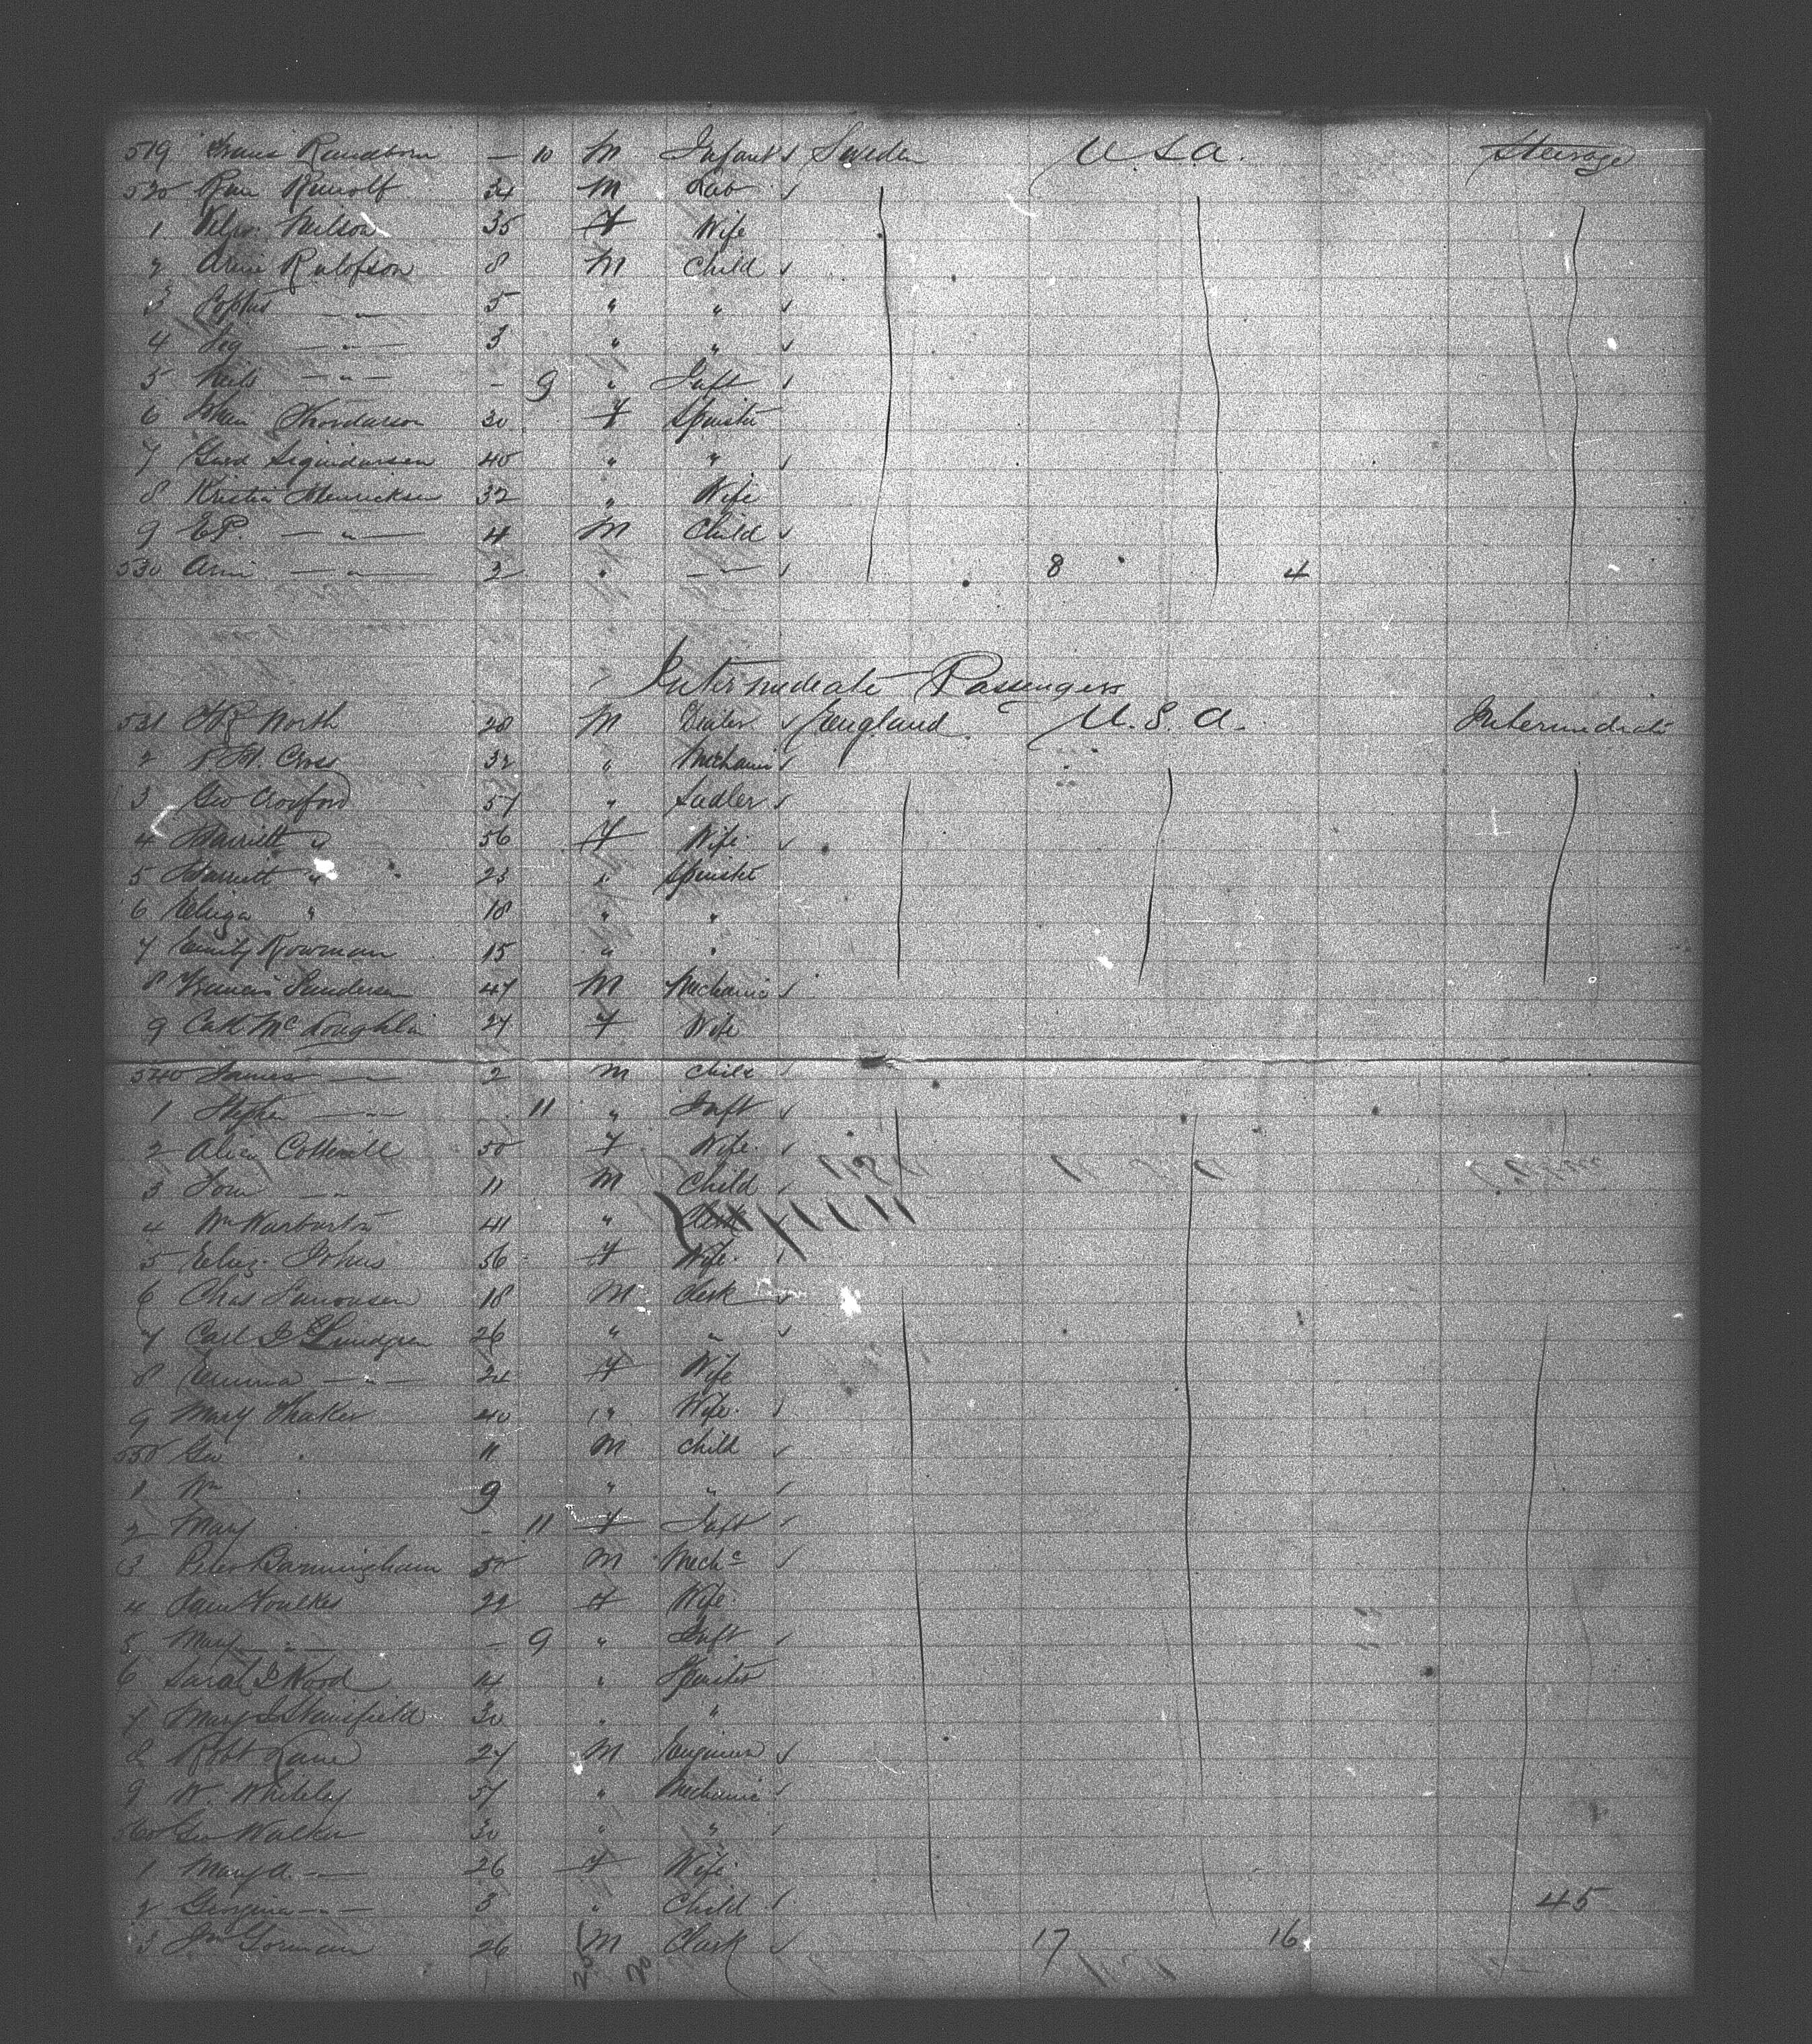 519 Frans Randborn — 10 M Infant ✓ Sweden U S A. Steerage
520 Run Runolf 34 M Lab ✓
1 Nilson 35 F Wife
2 Arne Rulofson 8 M Child ✓
3 — " — 5 " " ✓
4 Seg — " — 3 " " ✓
5 Neils — " — - 9 " Inft ✓
6 Thordarson 30 F Spinster
7 Gued Sigindarsen 40 " " ✓
8 Kristin Henricksen 32 " Wife
9 E P. — " — 4 M Child ✓
530 Arni — " — 2 " — " — ✓ 8 4
Intermediate Passengers
531 North 28 M ✓ England U. S. A. Intermediate
2 Cross 32 " Mechanic ✓
3 Geo Croxford 57 " Sadler ✓
4 Harriett " 56 F Wife ✓
5 Harriett " 23 " Spinster
6 Eliza " 18 " "
7 Emily Rowman 15 " "
8 Francis Sanderson 47 M Mechanic ✓
9 Cath McLoughlin 27 F Wife
540 James — " — 2 M Child ✓
1 Stephen — " — 11 " Inft ✓
2 Alice Cotterill 50 F Wife ✓
3 Tom — " 11 M Child ✓
4 Wm Warburton 41 " Clerk ✓
5 Eliz. Johns 56 F Wife ✓
6 Chas 18 M Clerk ✓
7 Carl J G Lundgren 26 " " ✓
8 Emma — " — 24 F Wife
9 Mary Thaker 40 " Wife ✓
550 Geo " 11 M Child ✓
1 Wm " 9 " " ✓
2 Mary " - 11 F Inft ✓
3 Peter Barmingham 50 M Mechc ✓
4 Jane Foulkes 22 F Wife
5 Mary — " — - 9 " Inft ✓
6 Sarah J Wood 14 " Spinster
7 Mary J Stansfield 30 " "
8 Robt Kane 27 M Engineer ✓
9 W. Whiteley 57 " Mechanic ✓
560 Geo Walker 30 " " ✓
1 Mary A. — " — 26 F Wife
2 Georgina — " — 3 " Child ✓ 45
3 Jno Gorman 26 M Clerk ✓ 17 16